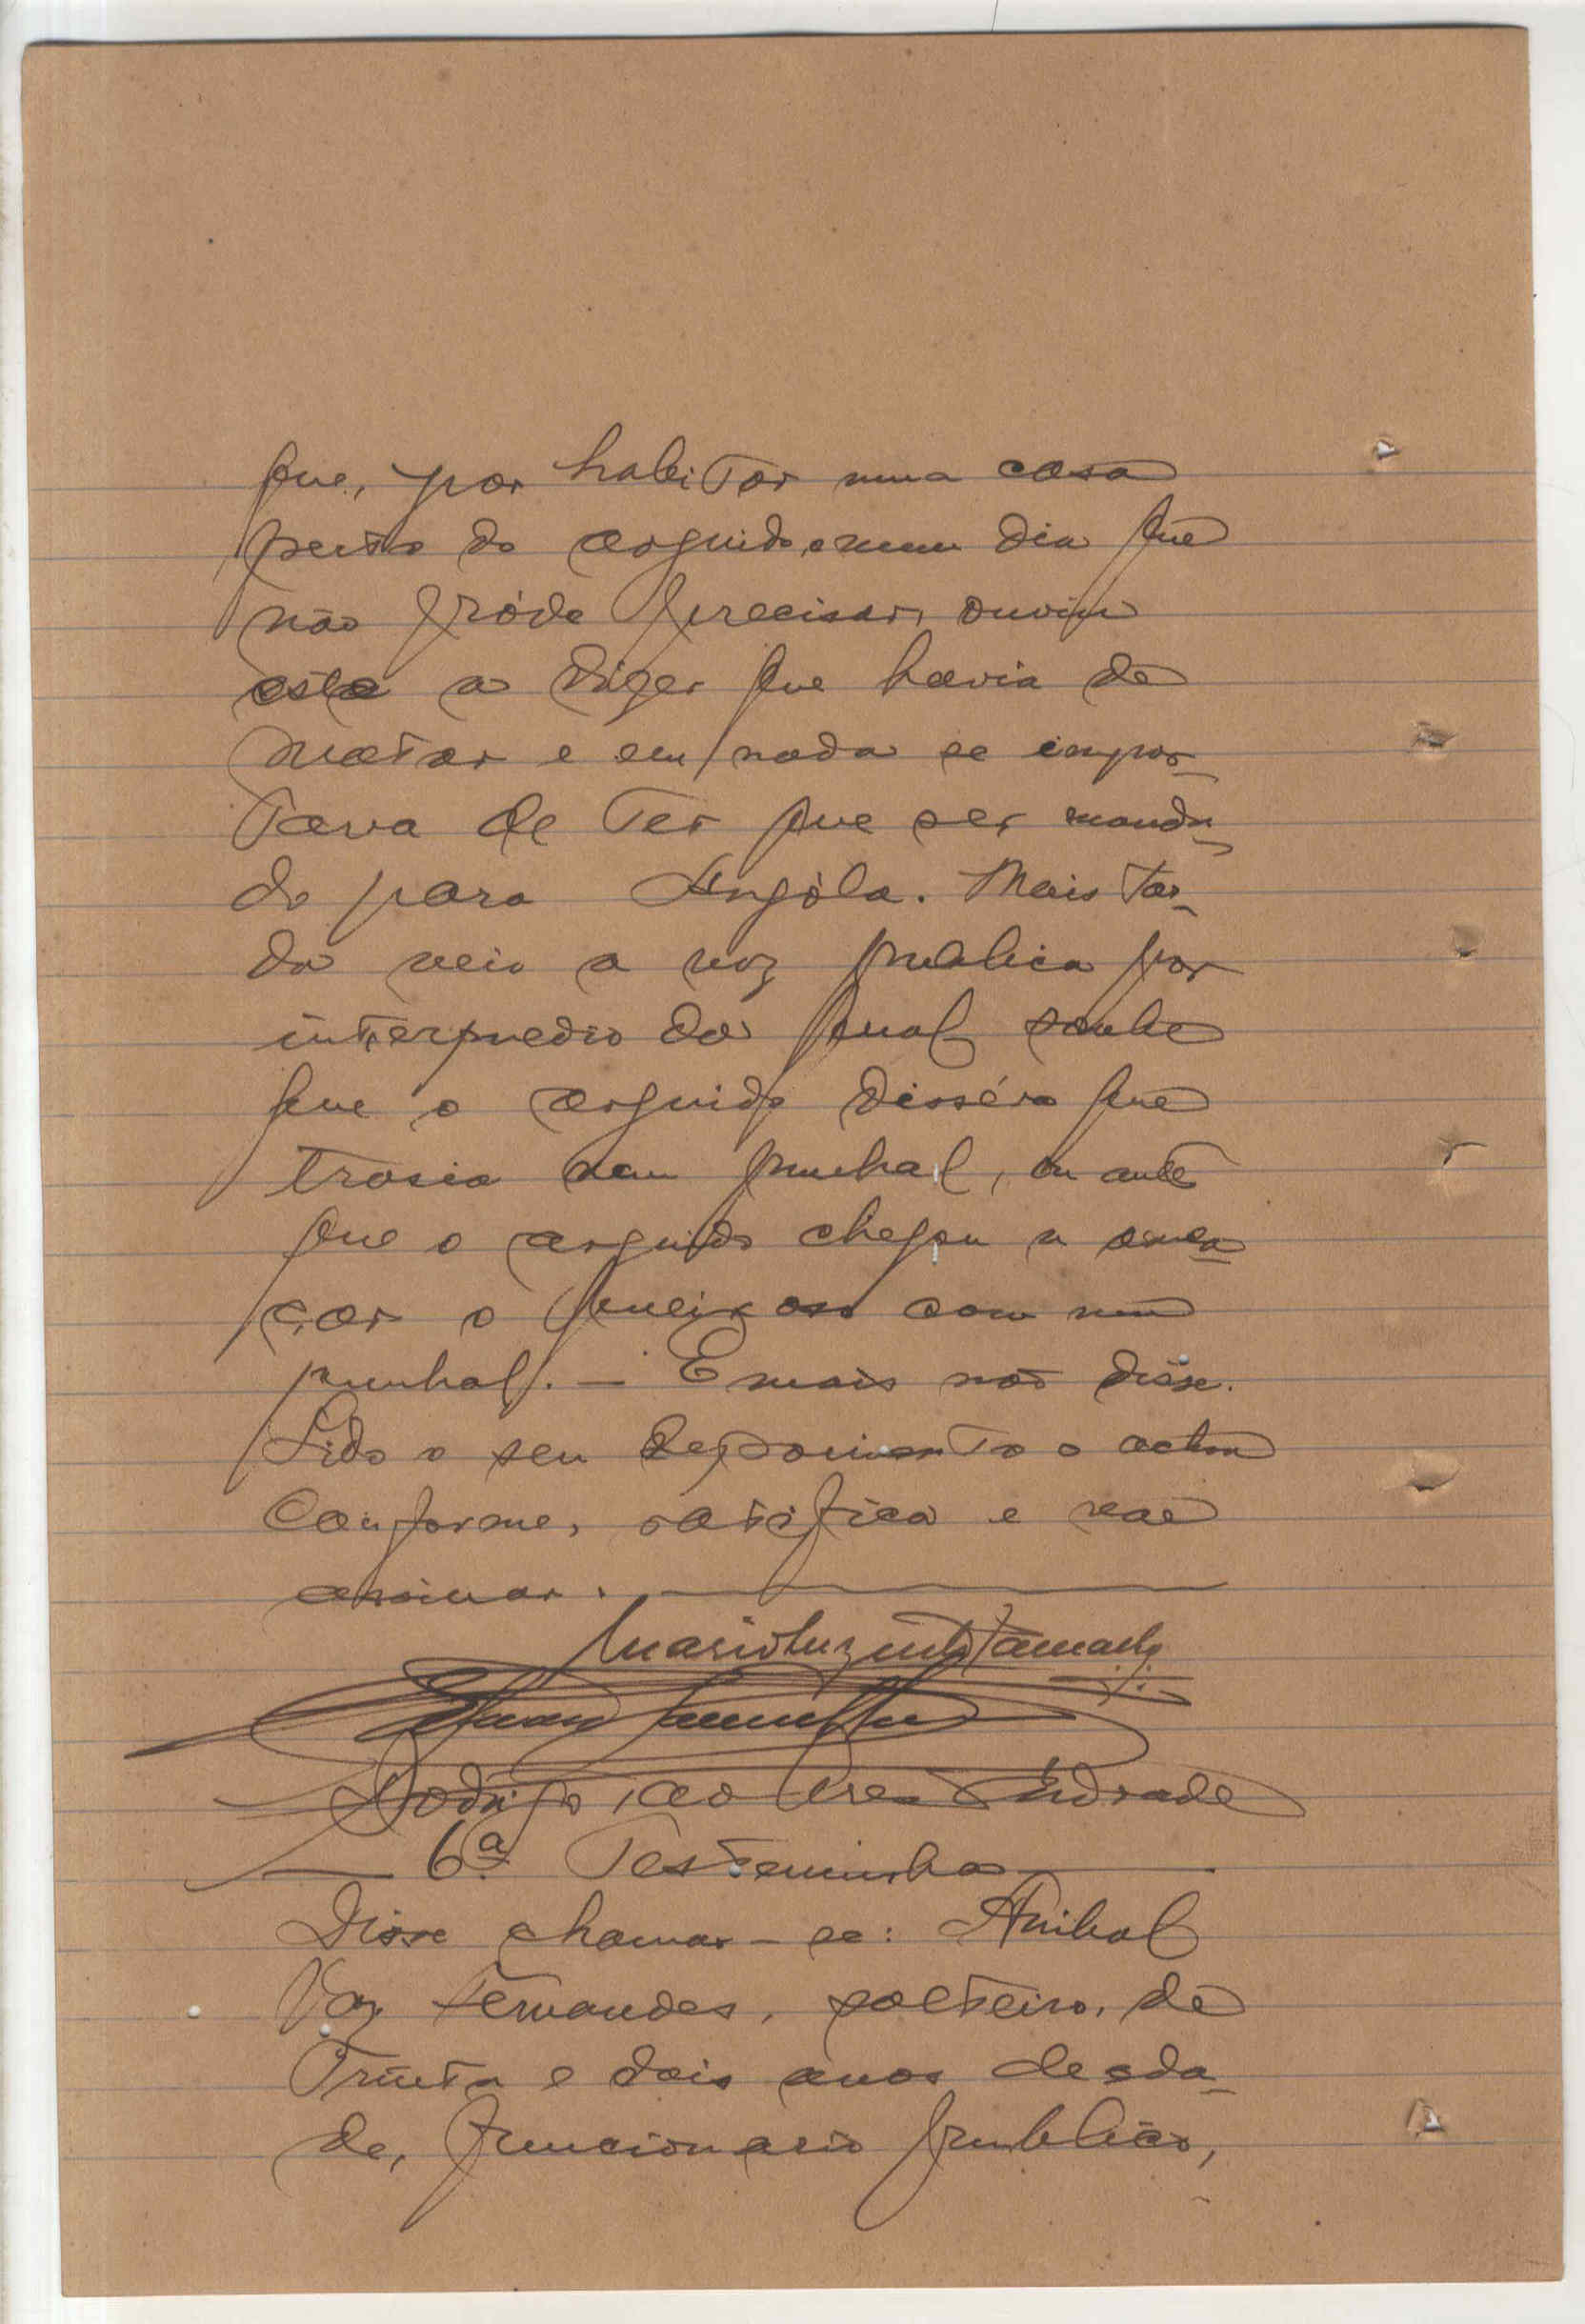 que, por habitar numa casa
perto do arguido, e num dia que
não póde precisar, ouviu
este a dizer que havia de
matar e em nada se impor-
tava de ter que ser manda-
do para Angóla. Mais tar-
de veio a voz publica por
intermedio da qual soube
que o arguido disséra que
trasia um punhal, ou ante
que o arguido chegou a amea-
çar o queixoso com um
punhal. — E mais não disse.
Lido o seu depoimento o achou
conforme, ratifica e vae
assinar.
Mario Luz
Rodrigo Andrade
— 6ª Testemunha —
Disse chamar-se: Anibal
Vaz Fernandes, solteiro, de
trinta e dois anos de eda-
de, funcionario publico,